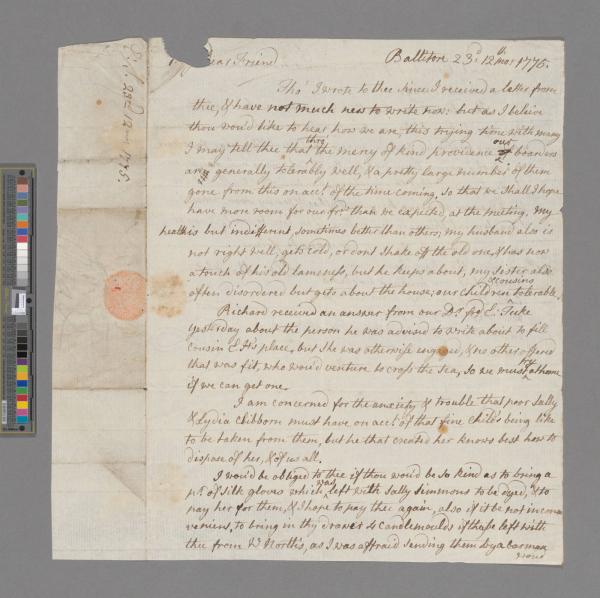 E.S. 23d 12mo 1775.
Dear Friend
Ballitore 23d. 12th mo: 1775.
Tho' I wrote to thee since I received a letter from
thee, & have not much new to write now: but as I believe
thou would like to hear how we are, this trying time with many
I may tell thee that thro the mercy of kind providence our boarders
are generally tolerably well, & a pretty large number of them
gone from this on acct. of the time coming, so that we shall I hope
have more room for our frds than we expected, at the meeting. My
health is but indifferent, sometimes better than others; my husband also is
not right well, gets cold, or dont shake off the old one, & has now
a touch of his old lameness, but he keeps about, my sister also
often disordered but gets about the house; our children & cousins tolerable.
Richard received an answer from our Dr. frd E: Tuke
yesterday about the person he was advised to write about to fill
cousin E. H's place, but she was otherwise engaged, & no other offered
that was fit, who would venture to cross the Sea, so we must try at home
if we can get one.
I am concerned for the anxiety & trouble that poor Sally
& Lydia Clibborn must have on acct. of that fine Child's being like
to be taken from them, but he that created her knows best how to
dispose of her, & of us all.
I wou'd be obliged to thee if thou would be so kind as to bring a
pr. of silk gloves which was left with Sally Simmons to be dyed, & to
pay her for them, & I hope to pay thee again, also if it be not incon-
venient, to bring in thy drawer 4 Candlemoulds if they're left with
thee from W North's, as I was affraid sending them by a carman